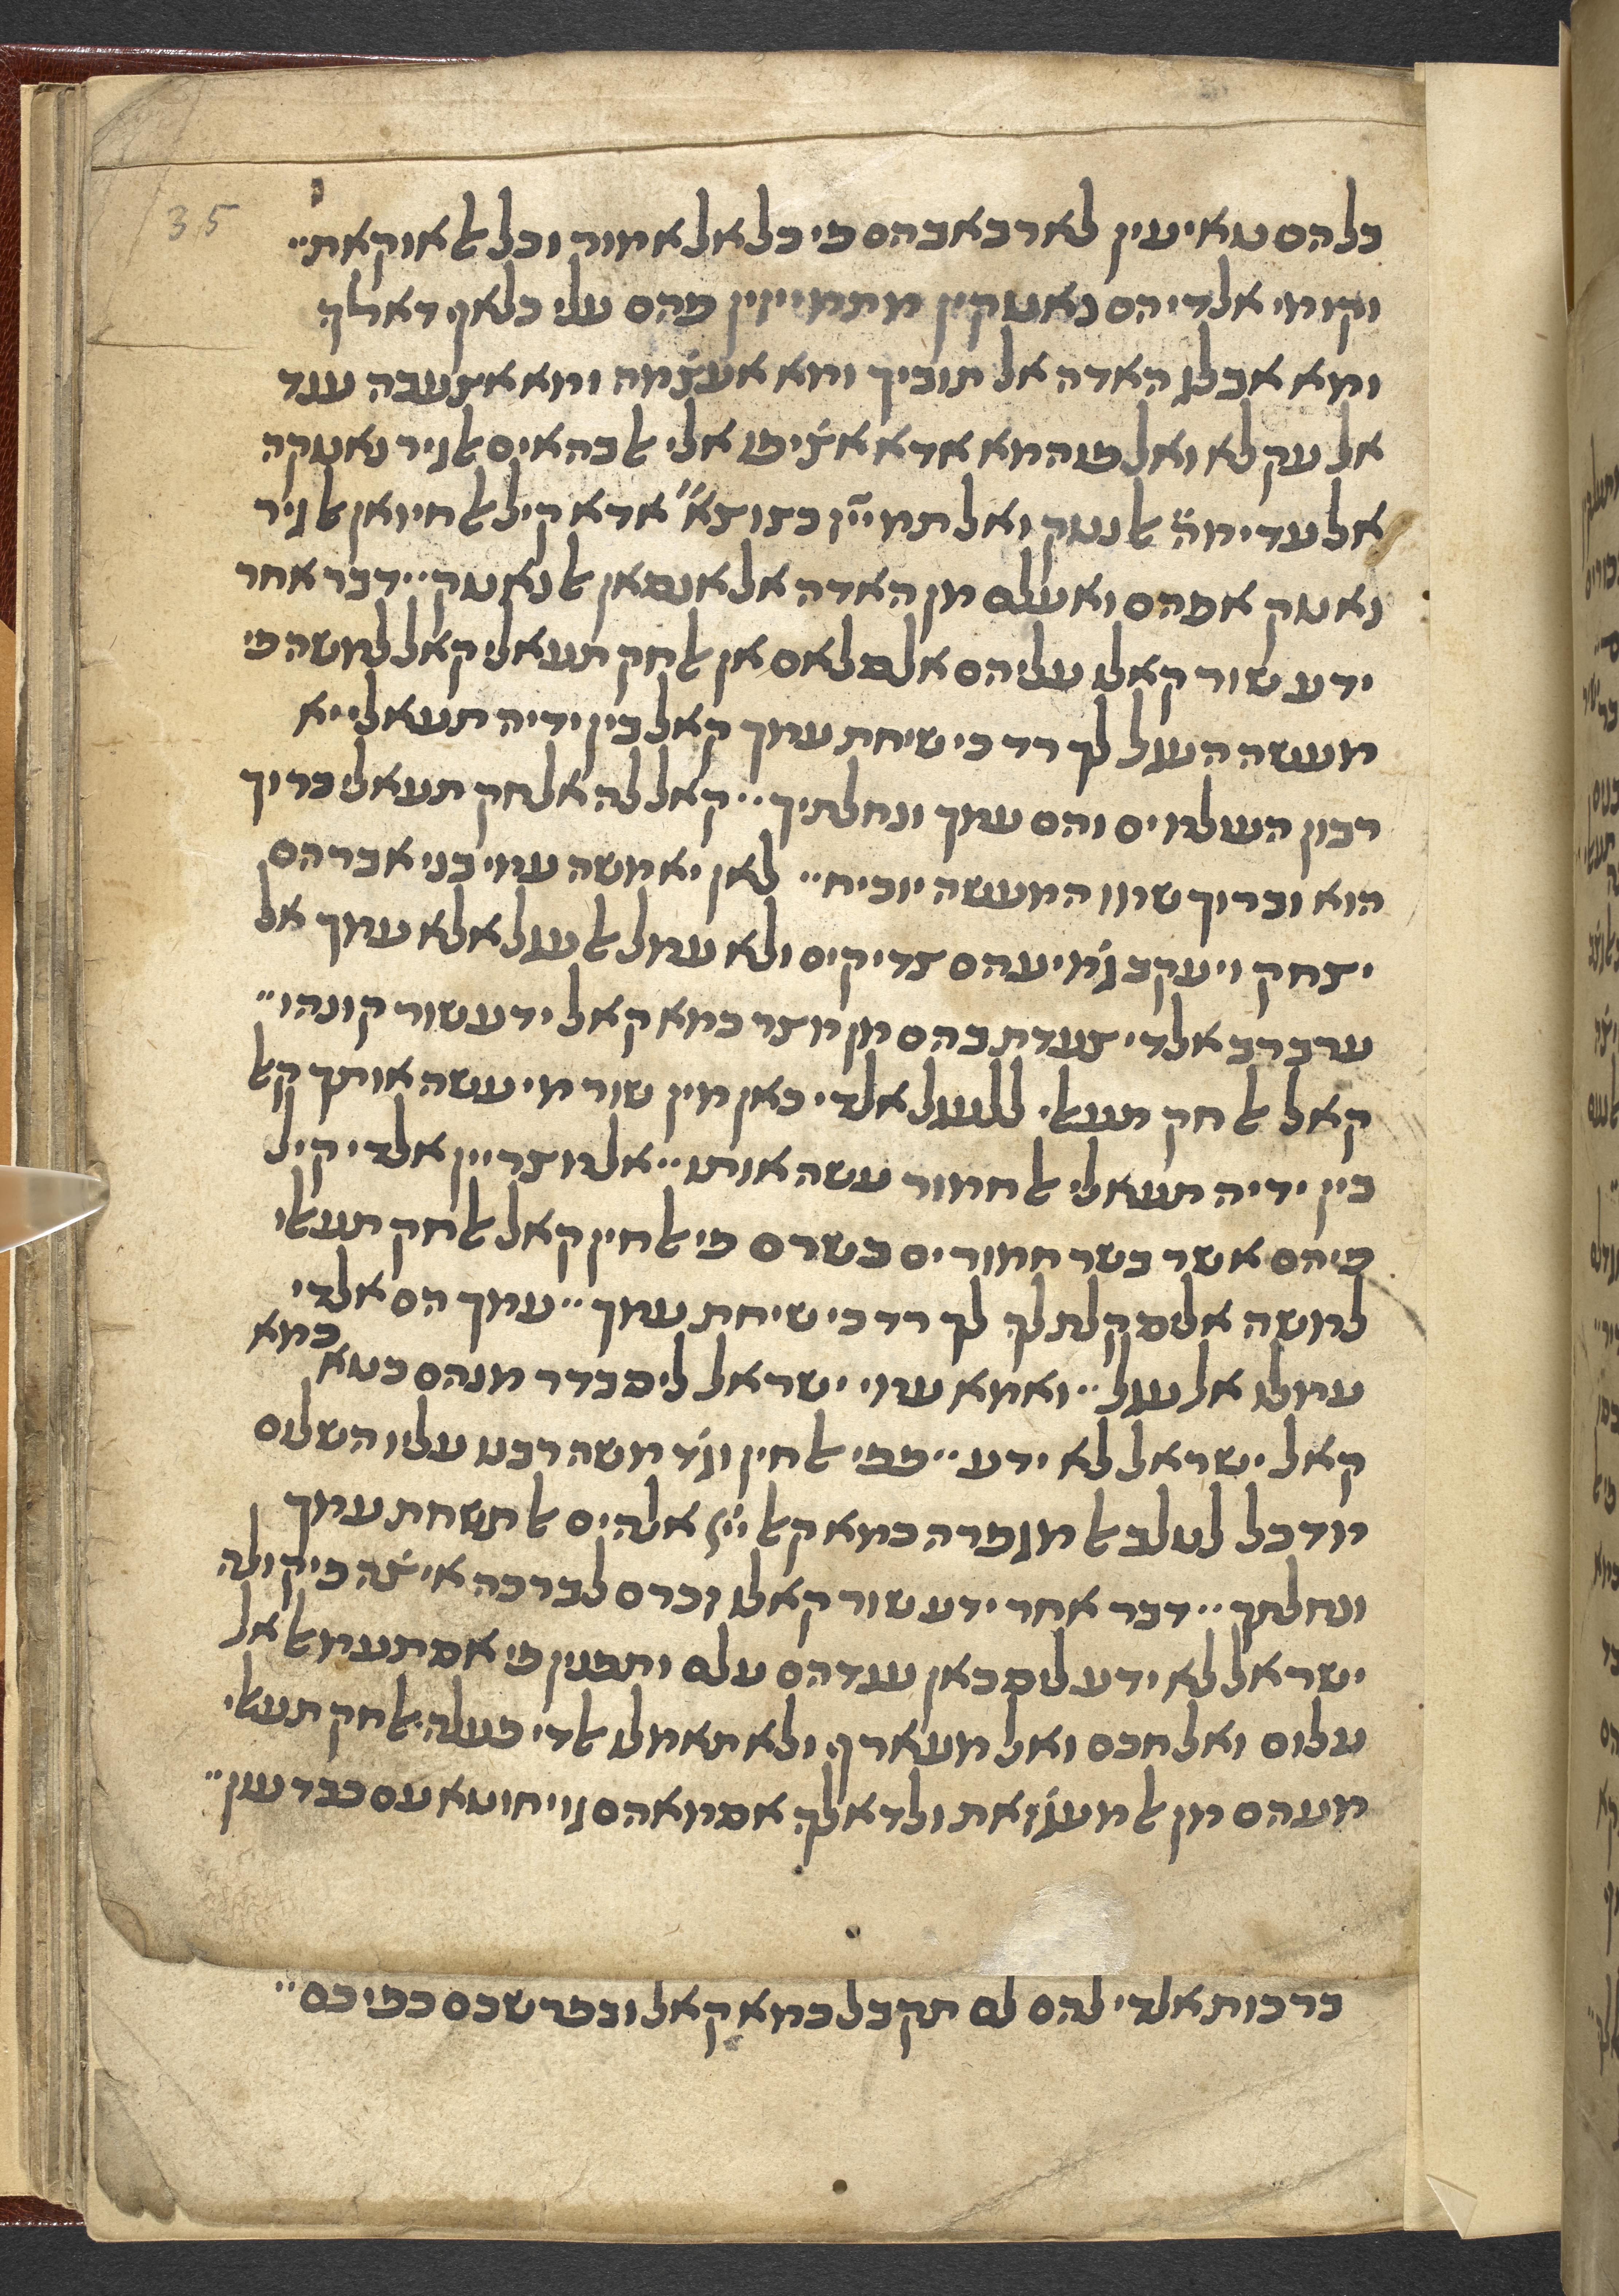 35
כלהם טאיעין לארבאבהם פי כל אלאמור וכל ﭏאוקאת״
וקומי אלדי הם נאטקין מתמייזין פהם עלי כלאף דאלך
ומא אבלג האדה אל תוביך ומא אעט̇מה ומא אצעבה ענד
אל עקלא ואלפהמא אדא אצ̇יפו אלי ﭏבהאים ﭏגיר נאטקה
אל עדימה̈ ﭏנטק ואלתמייז כצוצא״ אדא קיל ﭏחיואן ﭏגיר
נאטק אפהם ואעלם מן האדה אל אנסאן ﭏנאטק ״ דבר אחר
ידע שור קאלו עליהם אלסלאם אן ﭏחק תעאלי קאל למשה פי
מעשה העגל לך רד כי שיחת עמך קאל בין ידיה תעאלי יא
רבון העולמים והם עמך ונחלתיך ״ קאל לה אלחק תעאלי ברוך
הוא וברוך שמו המעשה יוכיח ״ לאן יא משה עמי בני אברהם
יצחק ויעקב ג̇מיעהם צדיקים ולא עמל ﭏעגל אלא עמך אל
ערב רב אלדי צעדת בהם מן מצר כמא קאל ידע שור קונהו״
קאל ﭏחק תעﭏי ללעגל אלדי כאן מין שור מי עשה אותך קﭏ
בין ידיה תעאלי ﭏחמור עשה אותו ״ אלמצריין אלדי קיל
פיהם אשר בשר חמורים בשרם פי ﭏחין קאל ﭏחק תעﭏי
למשה אלם קלת לך לך רד כי שיחת עמך ״ עמך הם אלדי
עמלו אל עגל ״ ואמא עמי ישראל לים בדר מנהם כטא כמא
קאל ישראל לא ידע ״ פפי ﭏחין וג̇ד משה רבנו עליו השלום
מדכל לטלב ﭏמגפרה כמא קﭏ ייי אלהים ﭏתשחת עמך
ונחלתך ״ דבר אחר ידע שור קאלו זכרם לברכה איצ̇ה פי קולה
ישראל לא ידע לים כאן ענדהם עלם ותפנין פי אסתעמﭏ אל
עלום ואלחכם ואלמעארף ולא תאמלו ﭏדי פעלה ﭏחק תעﭏי
מעהם מן ﭏמעג̇זאת ולדאלך אסמאהם גוי חוטא עם כבד עון״
ברכות אלדי להם לם תקבל כמא קאל ובפרשכם כפיכם״